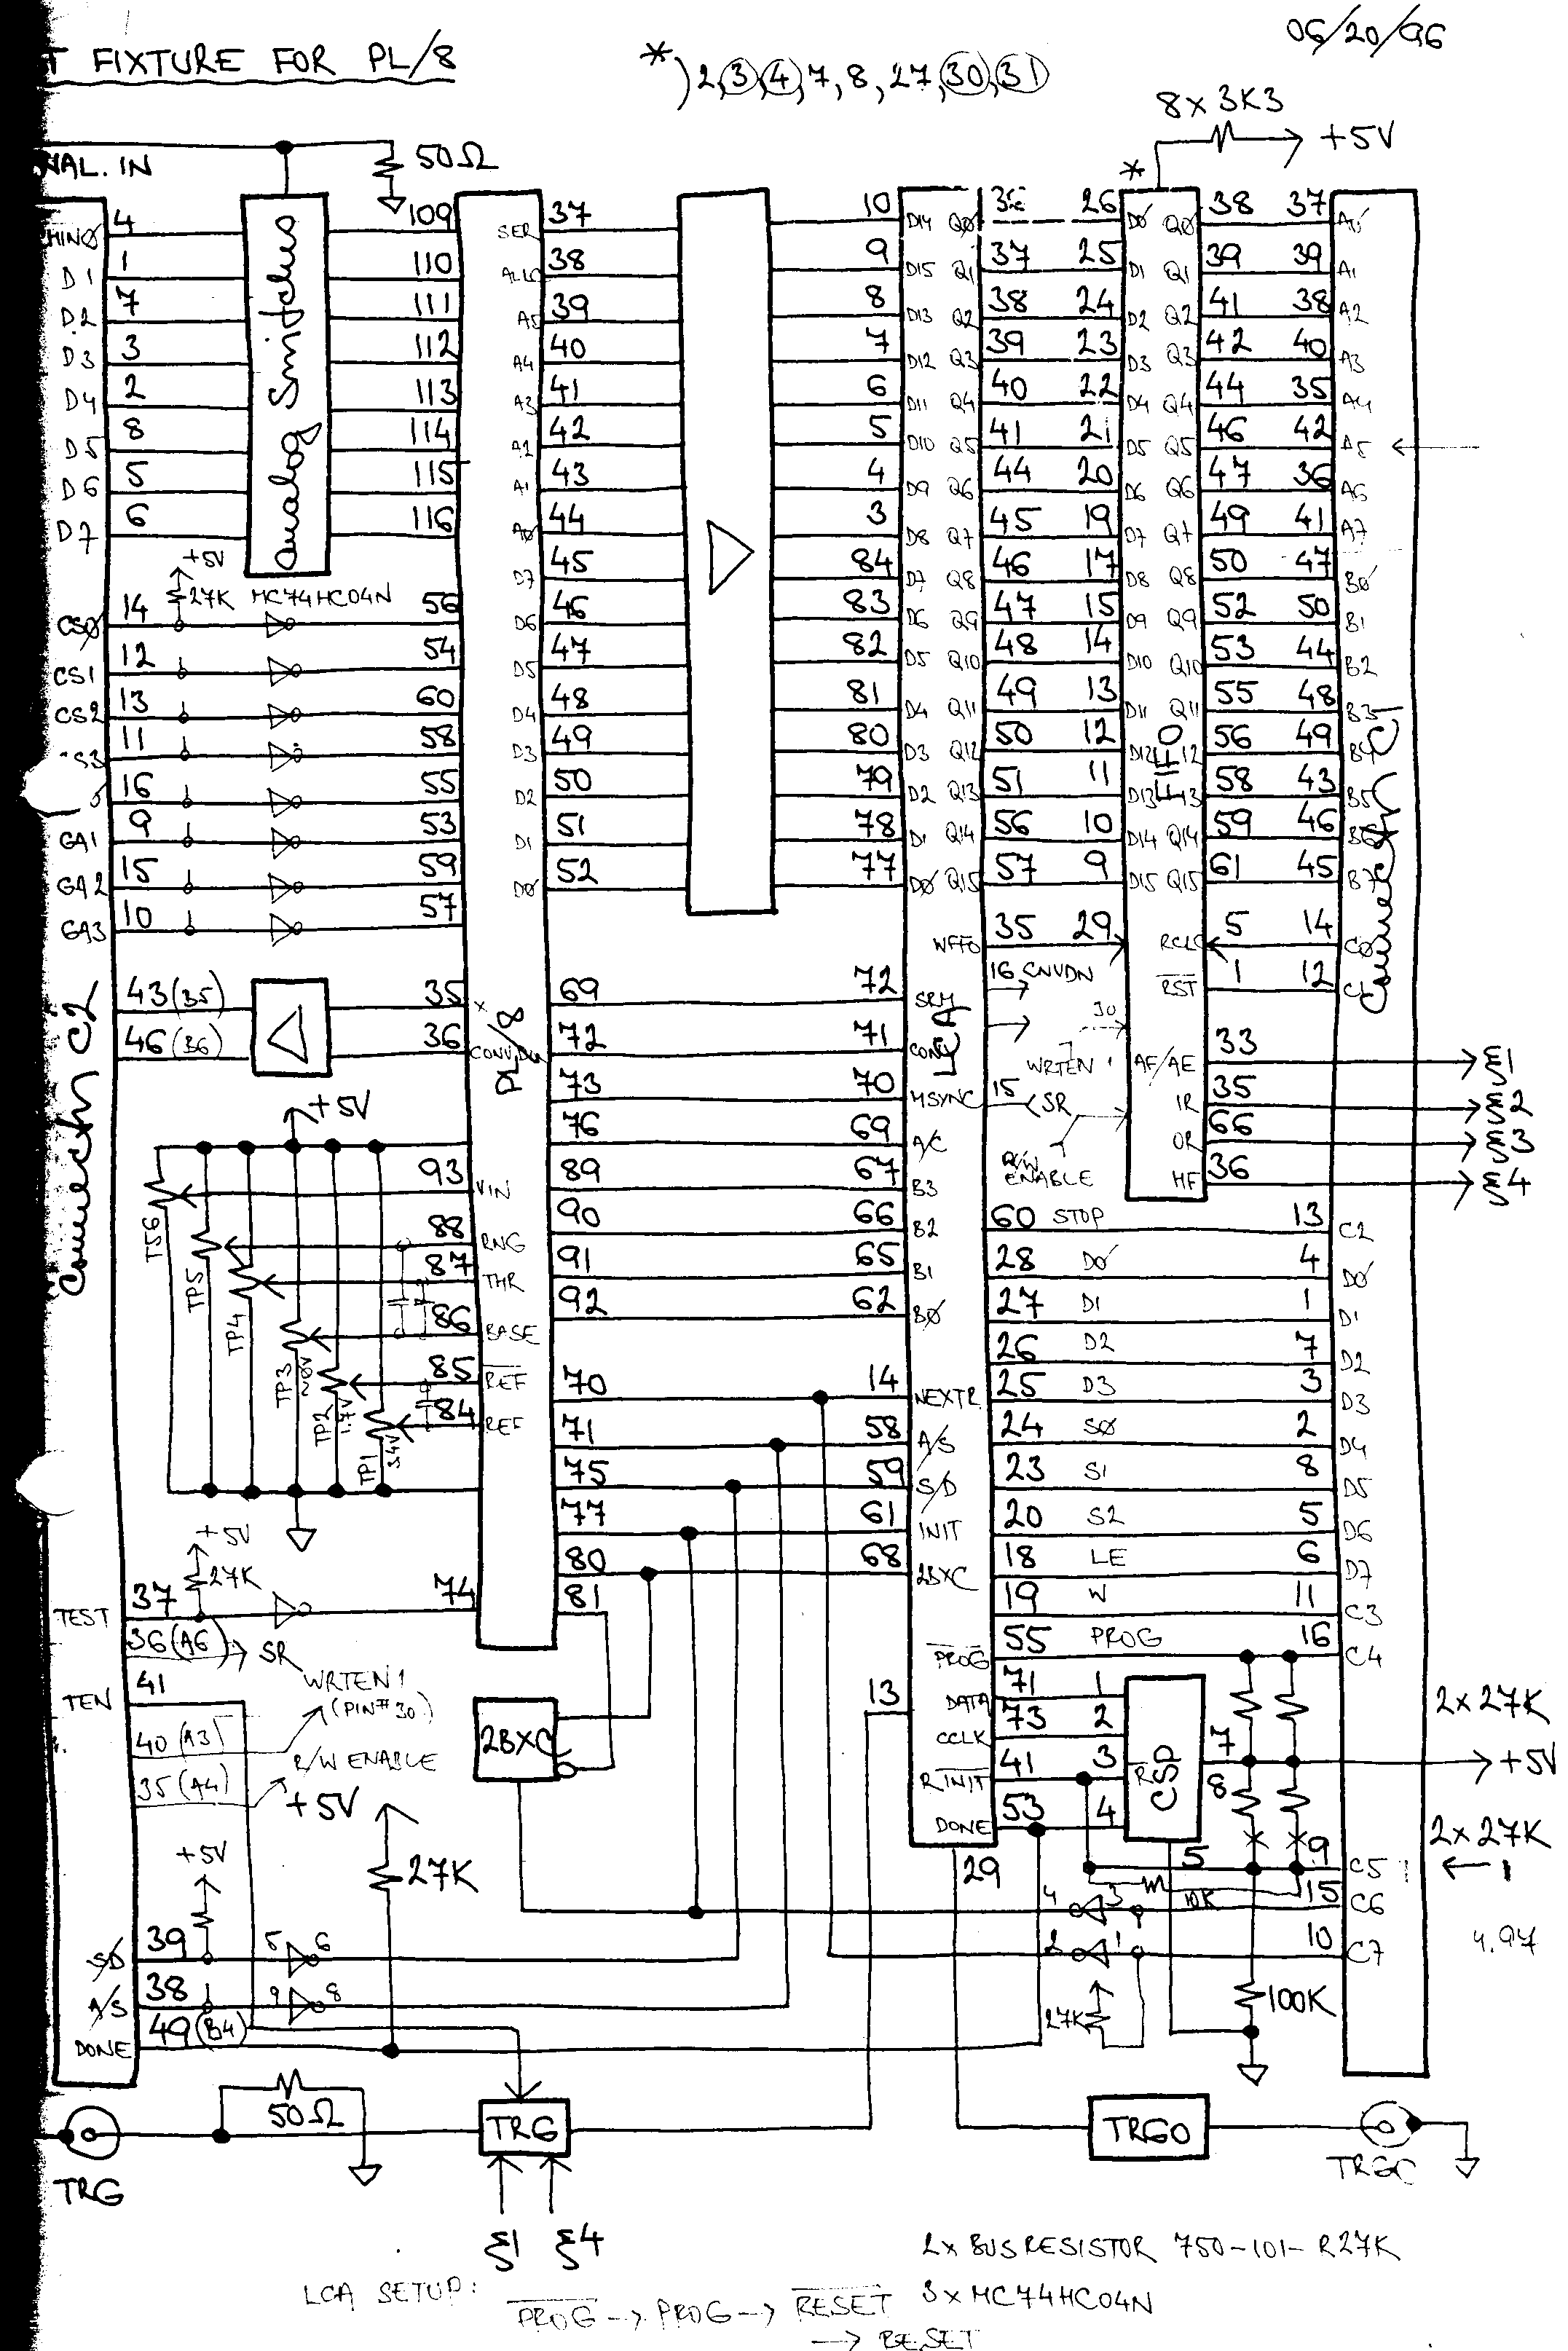 06/20/96
T FIXTURE FOR PL/8
*) 2,3,4,7,8,27,30,31
8 x 3K3
+5V
NAL. IN
50Ω
*
4 109 SER 37 10 D14 QØ 36 26 DØ QØ 38 37 AØ
D1 1 110 38 9 D15 Q1 37 25 D1 Q1 39 39 A1
D2 7 111 A5 39 8 D13 Q2 38 24 D2 Q2 41 38 A2
D3 3 112 A4 40 7 D12 Q3 39 23 D3 Q3 42 40 A3
D4 2 113 A3 41 6 D11 Q4 40 22 D4 Q4 44 35 A4
D5 8 114 A2 42 5 D10 Q5 41 21 D5 Q5 46 42 A5
D6 5 115 A1 43 4 D9 Q6 44 20 D6 Q6 47 36 A6
D7 6 116 AØ 44 3 D8 Q7 45 19 D7 Q7 49 41 A7
analog Switches
D7 45 84 D7 Q8 46 17 D8 Q8 50 47 BØ
+5V
27K MC74HC04N
CSØ 14 56 D6 46 83 D6 Q9 47 15 D9 Q9 52 50 B1
CS1 12 54 D5 47 82 D5 Q10 48 14 D10 Q10 53 44 B2
CS2 13 60 D4 48 81 D4 Q11 49 13 D11 Q11 55 48 B3
S3 11 58 D3 49 80 D3 Q12 50 12 D12 12 56 49 B4
16 55 D2 50 79 D2 Q13 51 11 D13 13 58 43 B5
GA1 9 53 D1 51 78 D1 Q14 56 10 D14 Q14 59 46 B6
GA2 15 59 DØ 52 77 DØ Q15 57 9 D15 Q15 61 45 B7
GA3 10 57
FIFO
Connector C1
WFFO 35 29 RCLC 5 14 CØ
16 CNVDN RST 1 12 C1
Connector C2
43(B5) 35 69 72
46(B6) 36 CONVDN 72 71 CONV
PL/8
LCA
30
WRTEN 1
AF/AE 33 ξ1
+5V
73 70 MSYNC 15 SR IR 35 ξ2
76 69 A/C OR 66 ξ3
93 VIN 89 67 B3 R/W ENABLE HF 36 ξ4
90 66 B2 60 STOP 13 C2
88 RNG 91 65 B1 28 DØ 4 DØ
87 THR 92 62 BØ 27 D1 1 D1
86 BASE 26 D2 7 D2
85 REF 70 14 NEXTR 25 D3 3 D3
84 REF 71 58 A/S 24 SØ 2 D4
TP5
TP4
TP3
TP2 1.7V
TP1 3.4V
75 59 S/D 23 S1 8 D5
77 61 INIT 20 S2 5 D6
80 68 2BXC 18 LE 6 D7
+5V
27K
TEST 37 74 81 19 W 11 C3
36(A6) SR
PROG 55 PROG 16 C4
TEN 41
WRTEN 1
(PIN# 30)
13 DATA 71 1
2 x 27K
40 (A3)
2BXC
CCLK 73 2 7 +5V
R/W ENABLE
35 (A4)
RINIT 41 3 R CSP 8
+5V
DONE 53 4
2 x 27K
+5V
27K
29 5 9 C5 1
4 3 10K 15 C6
S/D 39 5 6 2 1 10 C7 4.97
A/S 38 9 8
27K 100K
DONE 49(B4)
50Ω
TRG
TRG
TRGO
ξ1 ξ4
2x BUSRESISTOR 750-101-R27K
LCA SETUP:
PROG → PROG → RESET
3xMC74HC04N
→ RESET